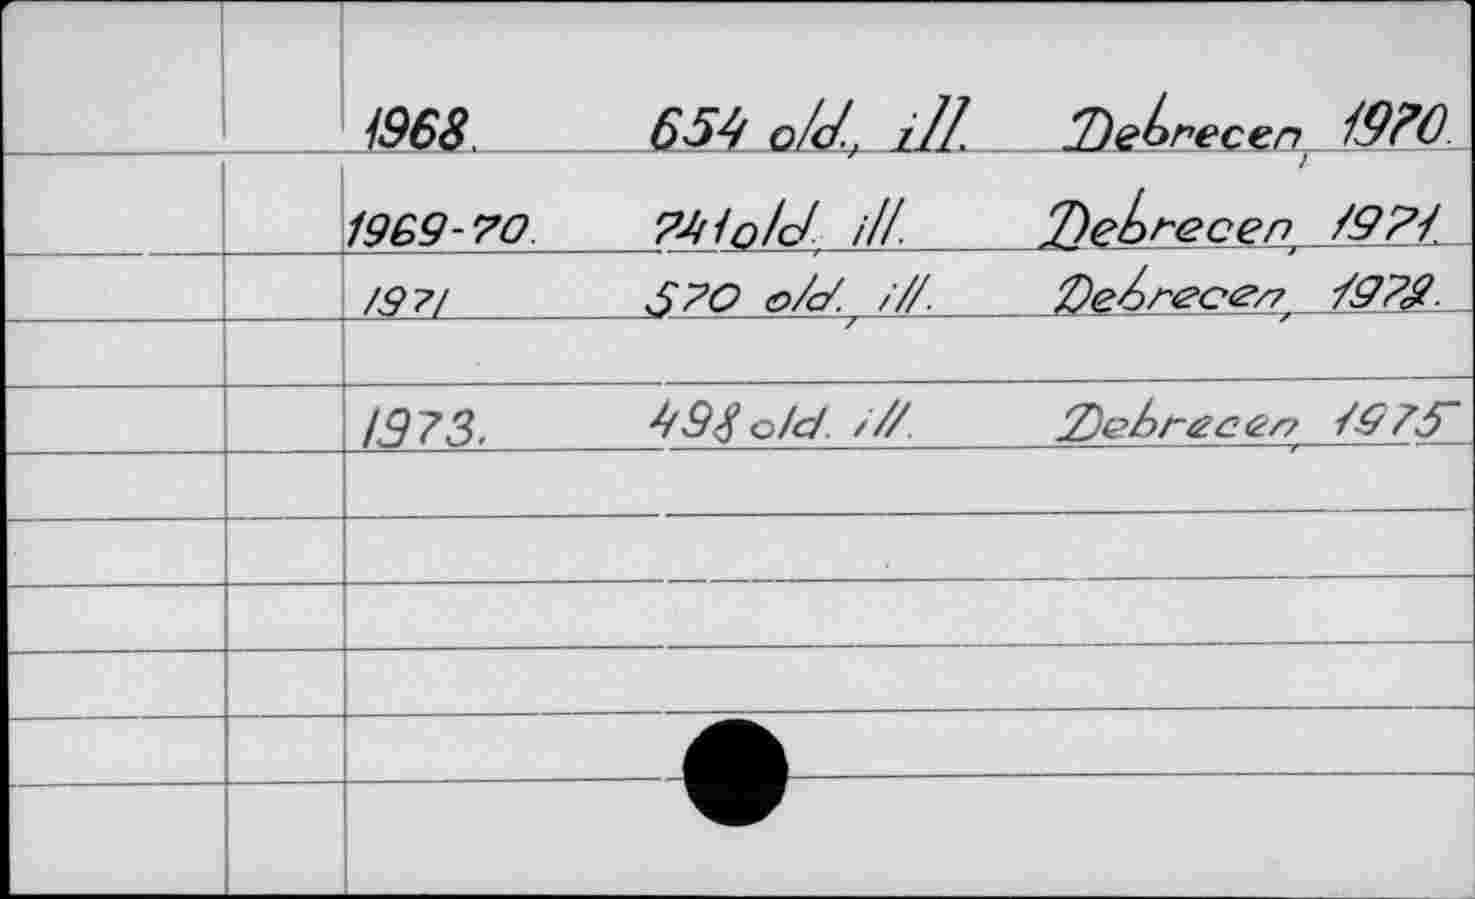 1968. 654 old., ill. Debrecen, 1970.
1969-70. 741 old., ill. Debrecen, 1971.
1971 570 old., ill. Debrecen, 1972.
1973. 498 old. ill. Debrecen, 1975